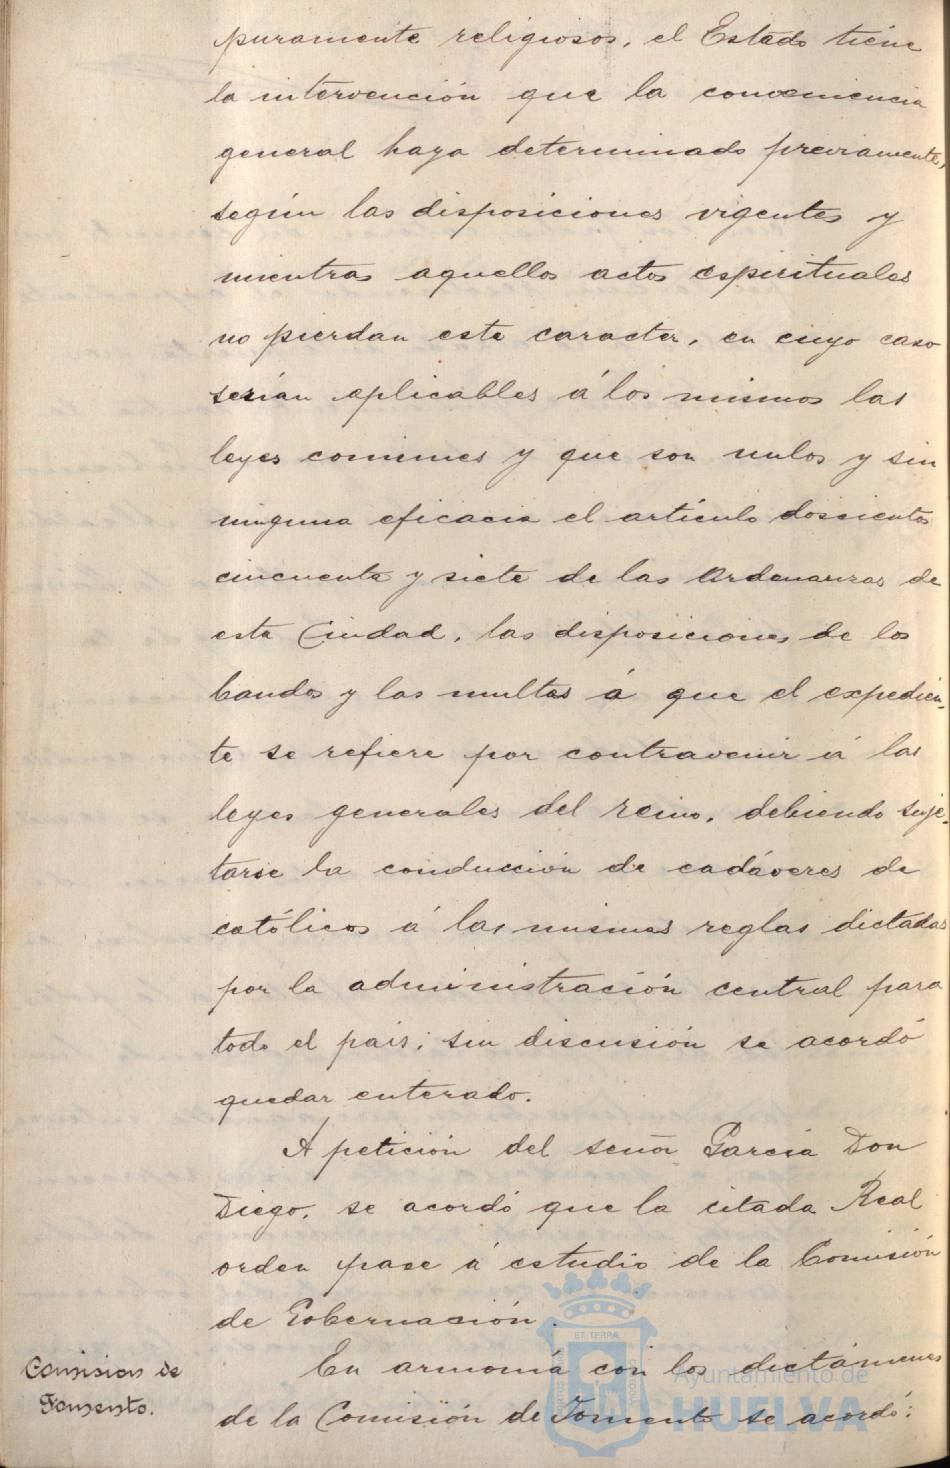 puramente religiosos, el Estado tiene
la intervención que la conveniencia
general haya determinado previamente,
según las disposiciones vigentes y
mientras aquellos actos espirituales
no pierdan este caracter, en cuyo caso
serían aplicables á los mismos las
leyes comunes y que son nulos y sin
ninguna eficacia el artículo doscientos
cincuenta y siete de las Ordenanzas de
esta Ciudad, las disposiciones de los
bandos y las multas á que el expedien-
te se refiere por contravenir á las
leyes generales del reino, debiendo suje-
tarse la conducción de cadáveres de
católicos á las mismas reglas dictadas
por la administración central para
todo el país; sin discusión se acordó
quedar enterado.
A petición del señor García Don
Diego, se acordó que la citada Real
orden pase á estudio de la Comisión
de Gobernación.
Comision de
Fomento.
En armonía con los dictámenes
de la Comisión de Fomento se acordó:
ET TERRA
Ayuntamiento de
HUELVA